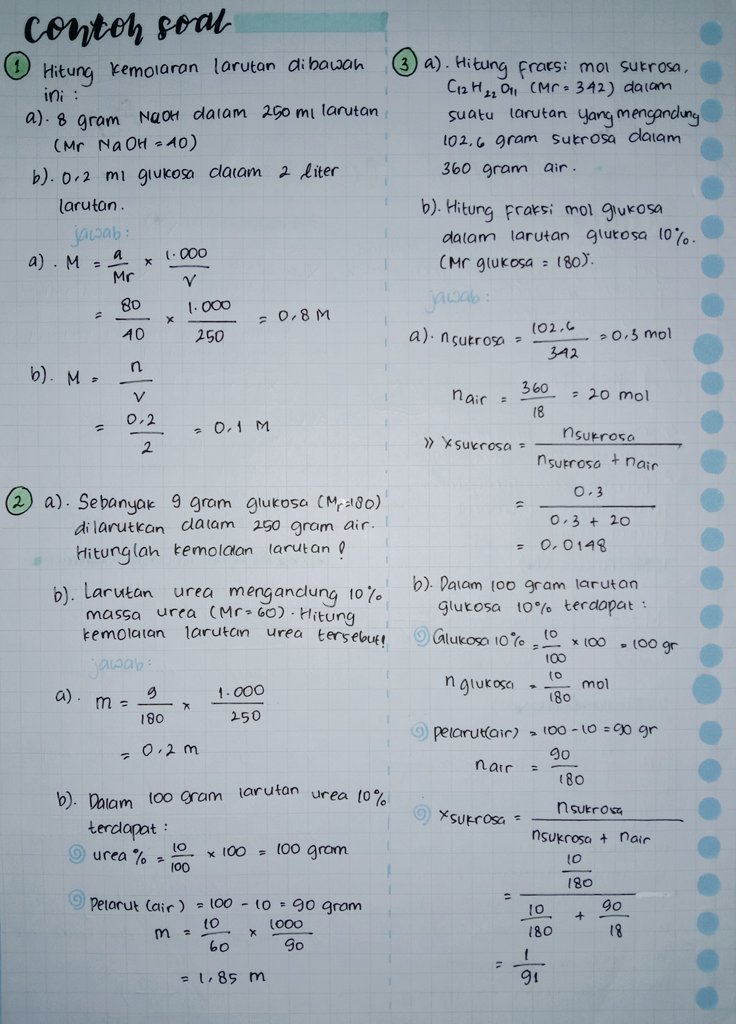 Contoh soal
1 Hitung kemolaran larutan dibawah
ini :
a). 8 gram NaOH dalam 250 ml larutan
(Mr NaOH = 40)
b). 0,2 ml glukosa dalam 2 liter
larutan.
jawab:
a). M = a/Mr × 1.000/V
= 80/40 × 1.000/250 = 0,8 M
b). M = n/V
= 0,2/2 = 0,1 M
2 a). Sebanyak 9 gram glukosa (Mr=180)
dilarutkan dalam 250 gram air.
Hitunglah kemolalan larutan !
b). Larutan urea mengandung 10%
massa urea (Mr=60). Hitung
kemolalan larutan urea tersebut!
jawab:
a). m = 9/180 × 1.000/250
= 0,2 m
b). Dalam 100 gram larutan urea 10%
terdapat :
urea % = 10/100 × 100 = 100 gram
Pelarut (air) = 100 - 10 = 90 gram
m = 10/60 × 1000/90
= 1,85 m
3 a). Hitung fraksi mol sukrosa,
C12H22O11 (Mr = 342) dalam
suatu larutan yang mengandung
102,6 gram sukrosa dalam
360 gram air.
b). Hitung fraksi mol glukosa
dalam larutan glukosa 10%.
(Mr glukosa = 180).
jawab:
a). n sukrosa = 102,6/342 = 0,3 mol
n air = 360/18 = 20 mol
>> x sukrosa = n sukrosa/n sukrosa + n air
= 0,3/0,3 + 20
= 0,0148
b). Dalam 100 gram larutan
glukosa 10% terdapat :
Glukosa 10% = 10/100 × 100 = 100 gr
n glukosa = 10/180 mol
pelarut(air) = 100 - 10 = 90 gr
n air = 90/180
x sukrosa = n sukrosa/n sukrosa + n air
= 10/180 / 10/180 + 90/18
= 1/91